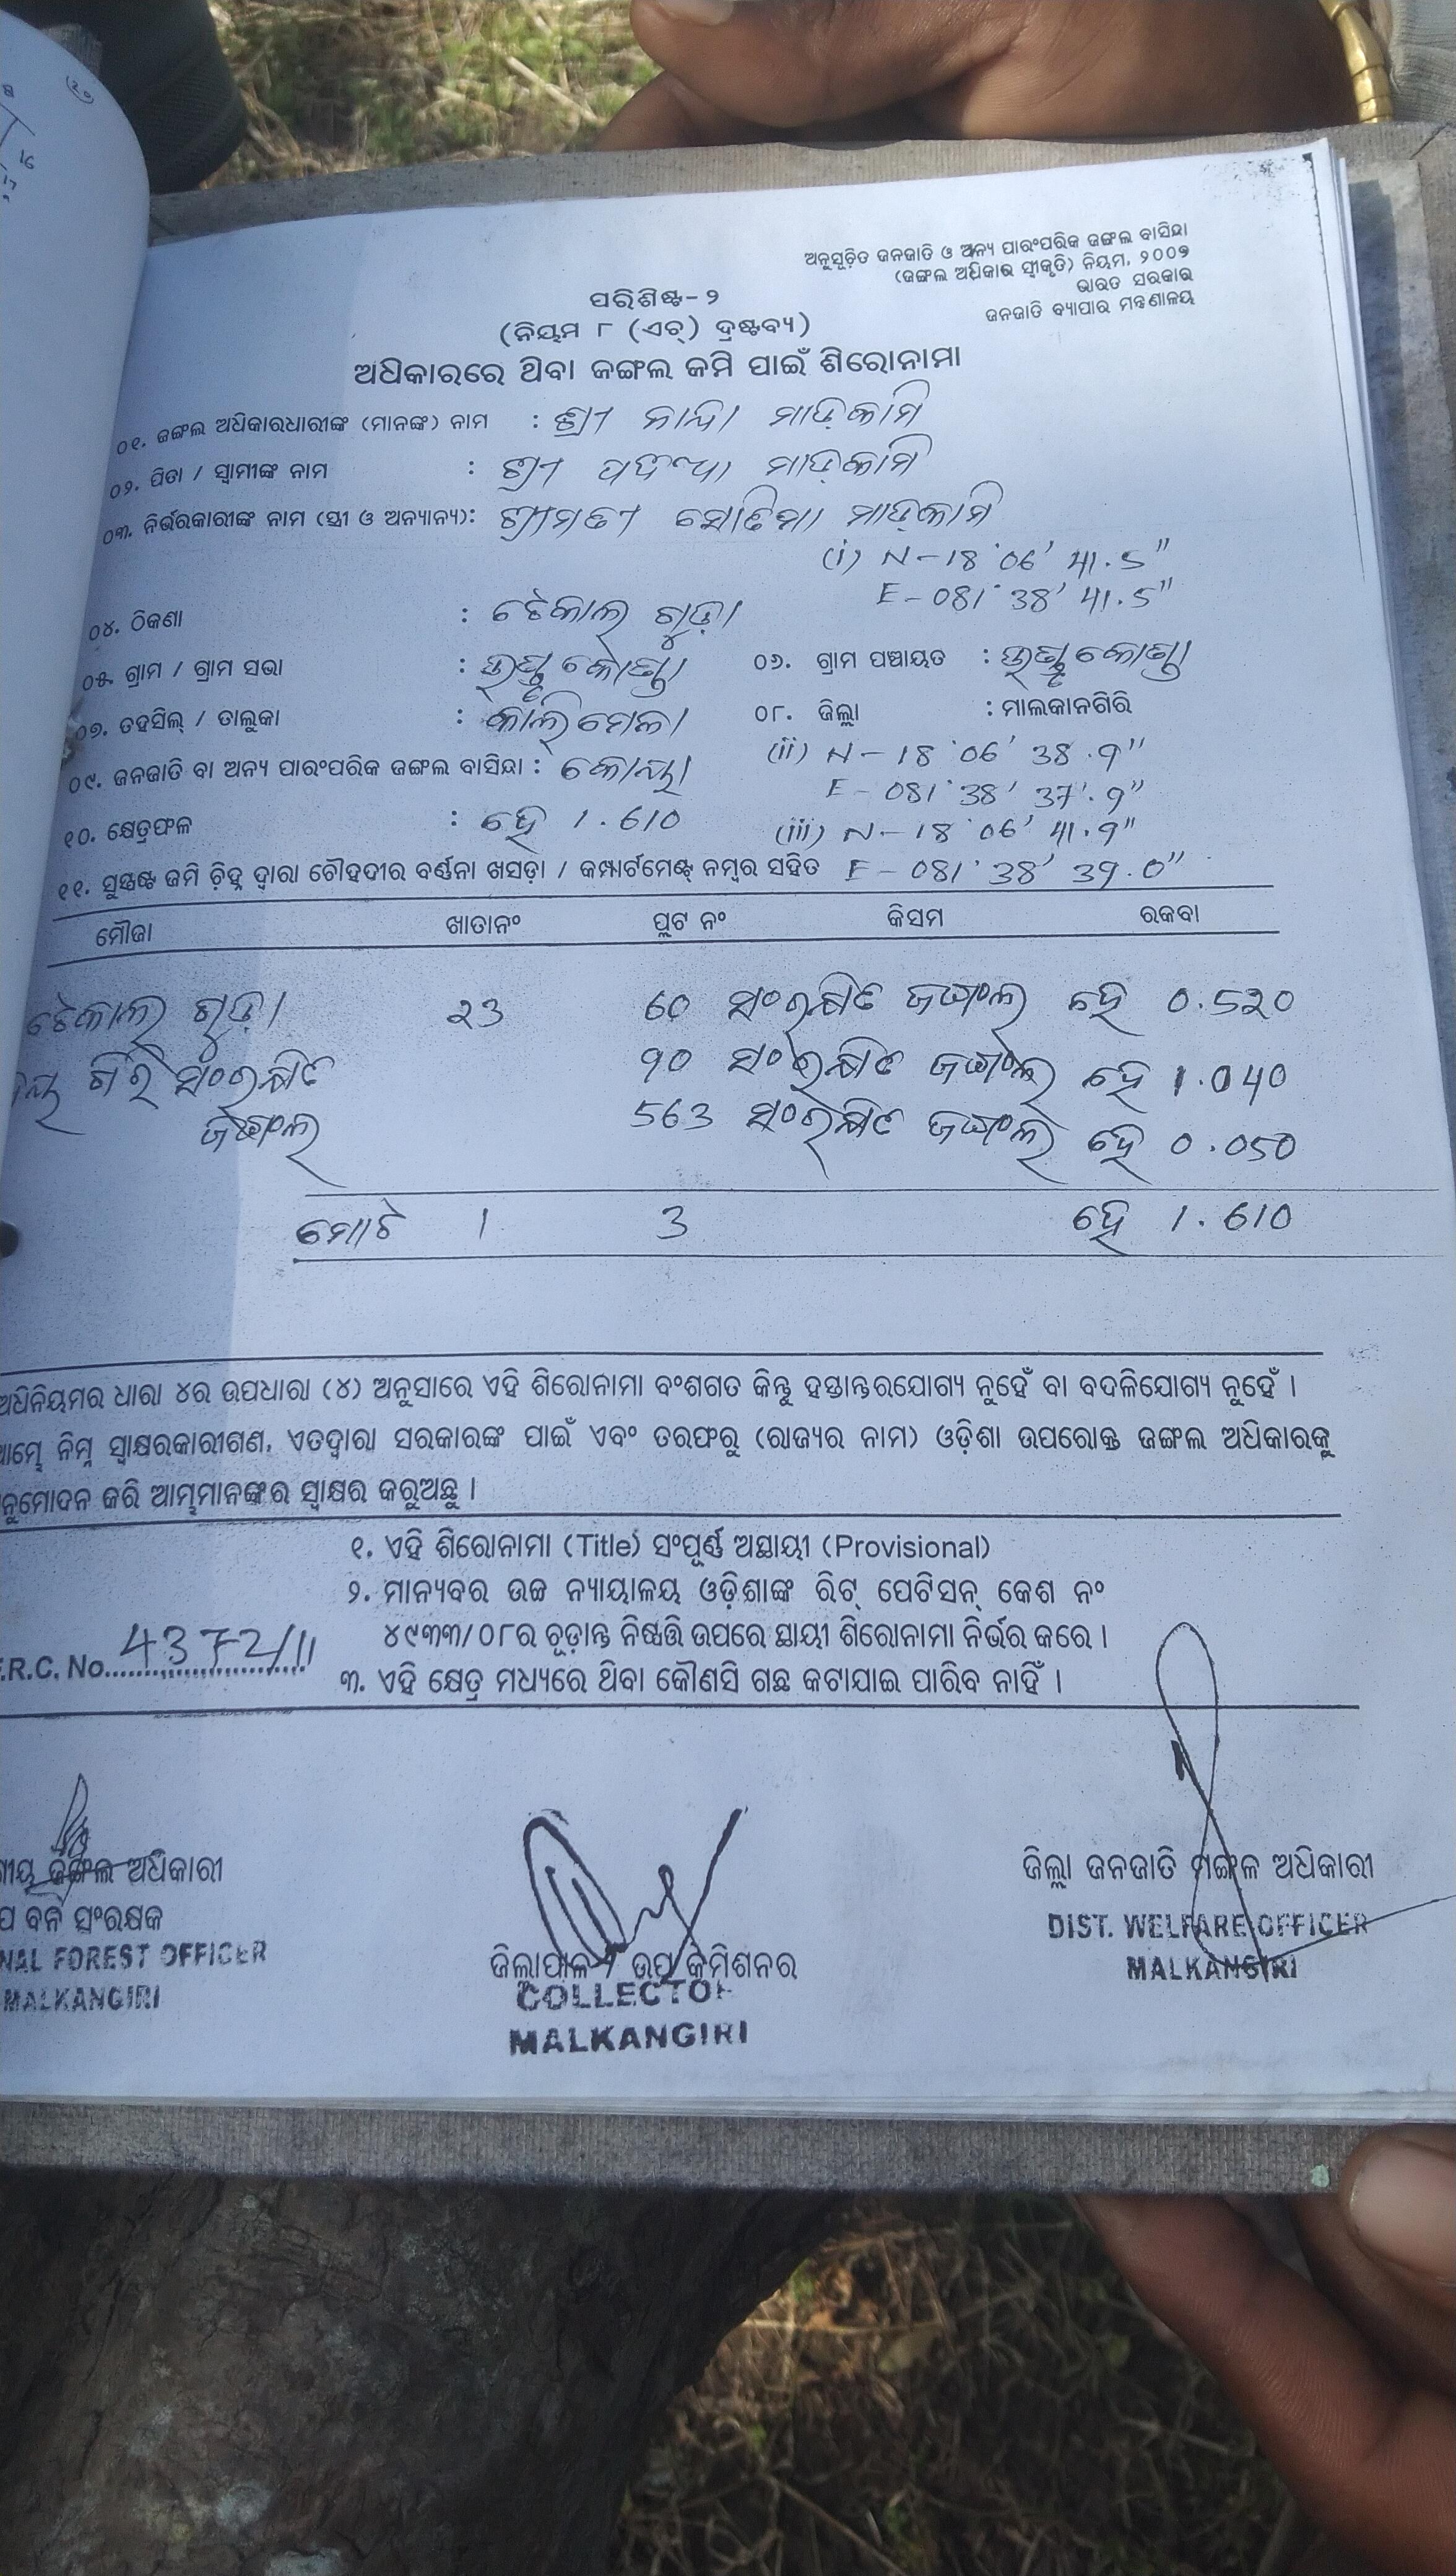 ଅନୁସୂଚିତ ଜନଜାତି ଓ ଅନ୍ୟ ପାରଂପରିକ ଜଙ୍ଗଲ ବାସିନ୍ଦା
(ଜଙ୍ଗଲ ଅଧିକାର ସ୍ୱୀକୃତି) ନିୟମ, ୨୦୦୭
ଭାରତ ସରକାର
ଜନଜାତି ବ୍ୟାପାର ମନ୍ତ୍ରଣାଳୟ
ପରିଶିଷ୍ଟ-୨
(ନିୟମ ୮ (ଏଚ୍) ଦ୍ରଷ୍ଟବ୍ୟ)
ଅଧିକାରରେ ଥିବା ଜଙ୍ଗଲ ଜମି ପାଇଁ ଶିରୋନାମା
୦୧. ଜଙ୍ଗଲ ଅଧିକାରଧାରୀଙ୍କ (ମାନଙ୍କ) ନାମ : ଶ୍ରୀ ନନ୍ଦା ମାଡ଼କାମି
୦୨. ପିତା / ସ୍ୱାମୀଙ୍କ ନାମ : ଶ୍ରୀ ମାଡ଼କାମି
୦୩. ନିର୍ଭରକାରୀଙ୍କ ନାମ (ସ୍ତ୍ରୀ ଓ ଅନ୍ୟାନ୍ୟ): ଶ୍ରୀମତୀ ମାଡ଼କାମି
(i) N-18°06' 41.5"
E-081°38' 41.5"
୦୪. ଠିକଣା : ଟେକାଲ ଗୁଡ଼ା
୦୫. ଗ୍ରାମ / ଗ୍ରାମ ସଭା : ୦୬. ଗ୍ରାମ ପଞ୍ଚାୟତ :
୦୭. ତହସିଲ୍ / ତାଲୁକା : କାଲିମେଳା ୦୮. ଜିଲ୍ଲା : ମାଲକାନଗିରି
(ii) N-18°06' 38.9"
୦୯. ଜନଜାତି ବା ଅନ୍ୟ ପାରଂପରିକ ଜଙ୍ଗଲ ବାସିନ୍ଦା : କୋୟା
E-081°38' 37.9"
୧୦. କ୍ଷେତ୍ରଫଳ : ହେ 1.610 (iii) N-18°06' 41.9"
୧୧. ସୁସ୍ପଷ୍ଟ ଜମି ଚିହ୍ନ ଦ୍ୱାରା ଚୌହଦୀର ବର୍ଣ୍ଣନା ଖସଡ଼ା / କମ୍ପାର୍ଟମେଣ୍ଟ୍ ନମ୍ବର ସହିତ E-081°38' 39.0"
ମୌଜା ଖାତାନଂ ପ୍ଲଟ ନଂ କିସମ ରକବା
ଟେକାଲ ଗୁଡ଼ା 23 60 ସଂରକ୍ଷିତ ଜଙ୍ଗଲ ହେ 0.520
ଗିରି ସଂରକ୍ଷିତ 90 ସଂରକ୍ଷିତ ଜଙ୍ଗଲ ହେ 1.040
ଜଙ୍ଗଲ 563 ସଂରକ୍ଷିତ ଜଙ୍ଗଲ ହେ 0.050
ମୋଟ 1 3 ହେ 1.610
ଅଧିନିୟମର ଧାରା ୪ର ଉପଧାରା (୪) ଅନୁସାରେ ଏହି ଶିରୋନାମା ବଂଶଗତ କିନ୍ତୁ ହସ୍ତାନ୍ତରଯୋଗ୍ୟ ନୁହେଁ ବା ବଦଳିଯୋଗ୍ୟ ନୁହେଁ ।
ଆମ୍ଭେ ନିମ୍ନ ସ୍ୱାକ୍ଷରକାରୀଗଣ, ଏତଦ୍ୱାରା ସରକାରଙ୍କ ପାଇଁ ଏବଂ ତରଫରୁ (ରାଜ୍ୟର ନାମ) ଓଡ଼ିଶା ଉପରୋକ୍ତ ଜଙ୍ଗଲ ଅଧିକାରକୁ
ନୁମୋଦନ କରି ଆମ୍ଭମାନଙ୍କର ସ୍ୱାକ୍ଷର କରୁଅଛୁ ।
୧. ଏହି ଶିରୋନାମା (Title) ସଂପୂର୍ଣ୍ଣ ଅସ୍ଥାୟୀ (Provisional)
୨. ମାନ୍ୟବର ଉଚ୍ଚ ନ୍ୟାୟାଳୟ ଓଡ଼ିଶାଙ୍କ ରିଟ୍ ପେଟିସନ୍ କେଶ ନଂ
୪୯୩୩/୦୮ର ଚୂଡ଼ାନ୍ତ ନିଷ୍ପତ୍ତି ଉପରେ ସ୍ଥାୟୀ ଶିରୋନାମା ନିର୍ଭର କରେ ।
.R.C. No. 4372/11
୩. ଏହି କ୍ଷେତ୍ର ମଧ୍ୟରେ ଥିବା କୌଣସି ଗଛ କଟାଯାଇ ପାରିବ ନାହିଁ ।
ୀୟ ଜଙ୍ଗଲ ଅଧିକାରୀ
ପ ବନ ସଂରକ୍ଷକ
NAL FOREST OFFICER
MALKANGIRI
ଜିଲ୍ଲାପାଳ / ଉପ କମିଶନର
COLLECTOR
MALKANGIRI
ଜିଲ୍ଲା ଜନଜାତି ମଙ୍ଗଳ ଅଧିକାରୀ
DIST. WELFARE OFFICER
MALKANGIRI